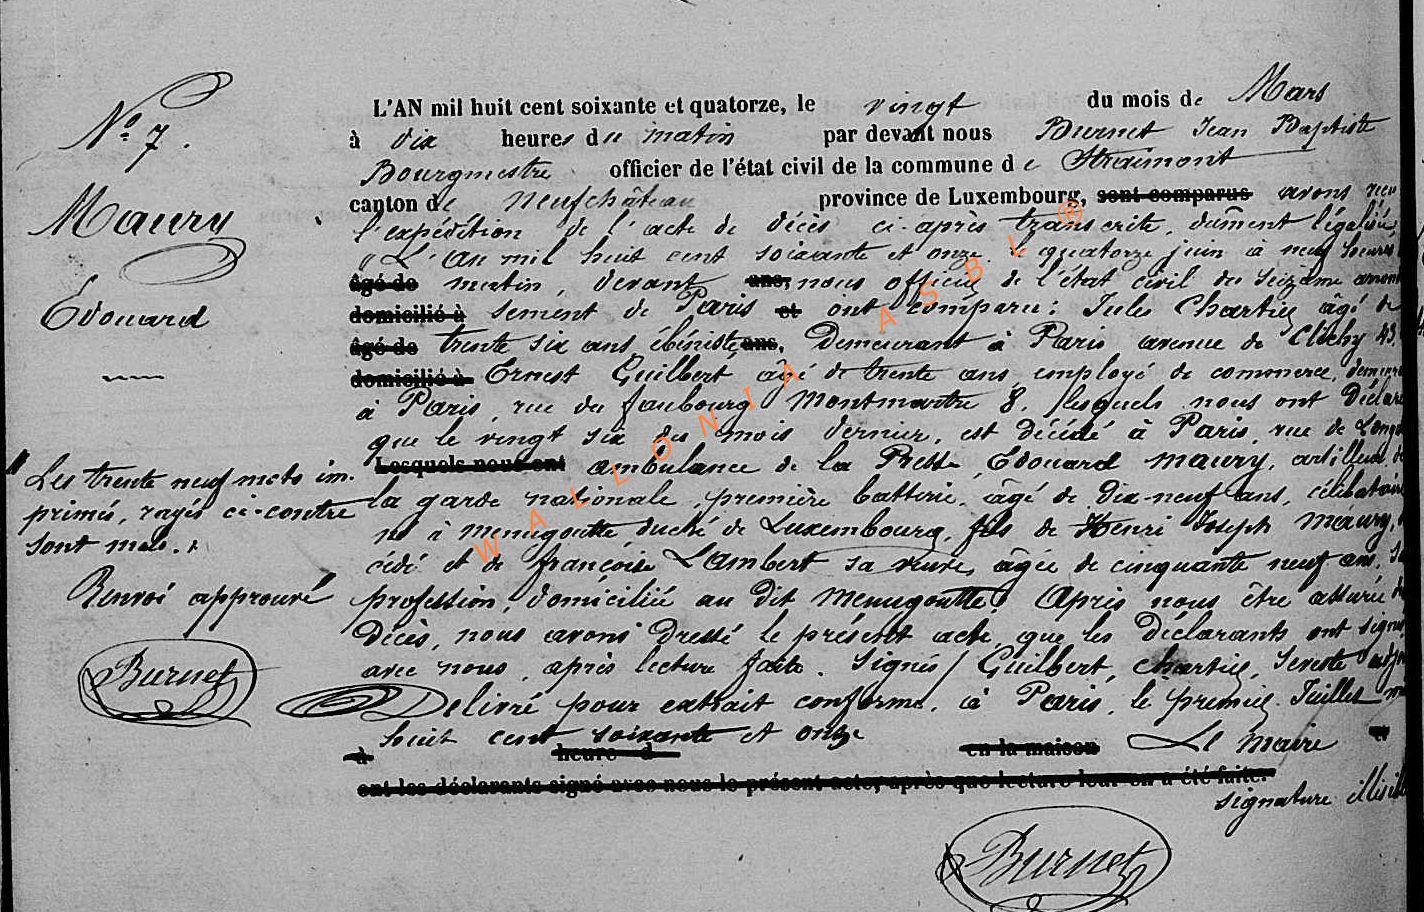 N° 7.
Maury
Edouard
L'AN mil huit cent soixante et quatorze, le vingt du mois de Mars
à dix heures du matin par devant nous Burnet Jean Baptiste
Bourgmestre officier de l'état civil de la commune de Straimont
canton de Neufchâteau province de Luxembourg, sont comparus avons reçu
l'expédition de l'acte de décès ci-après transcrite, dûment légalisée
"L'an mil huit cent soixante et onze, le quatorze juin à neuf heures
âgé de matin, devant ans, nous officier de l'état civil du seizième arron
domicilié à sement de Paris et ont comparu: Jules Chartier âgé de
âgé de trente six ans ébéniste ans, demeurant à Paris avenue de Clichy 43.
domicilié à Ernest Guilbert âgé de trente ans employé de commerce, demeura
à Paris, rue du faubourg Montmartre 8, lesquels nous ont déclaré
que le vingt six du mois dernier, est décédé à Paris, rue de
Lesquels nous ont ambulance de la Presse, Edouard Maury, artilleur de
la garde nationale, première batterie, âgé de dix-neuf ans, célibataire
né à Menugoutte duché de Luxembourg, fils de Henri Joseph Maury,
cédé et de françoise Lambert sa veuve, âgée de cinquante neuf ans,
profession, domiciliée au dit Menugoutte. Après nous être assuré du
décès, nous avons dressé le présent acte, que les déclarants ont signé
avec nous, après lecture faite. Signés / Guilbert, Chartier,
Delivré pour extrait conforme, à Paris, le premier Juillet
huit cent soixante et onze
à heure d en la maison Le Maire
ont les déclarants signé avec nous le présent acte, après que lecture leur en a été faite.
signature illisible
Burnet
Les trente neuf mots im-
primés, rayés ci-contre
sont nuls.
Renvoi approuvé
Burnet
WALLONIA ASBL ®